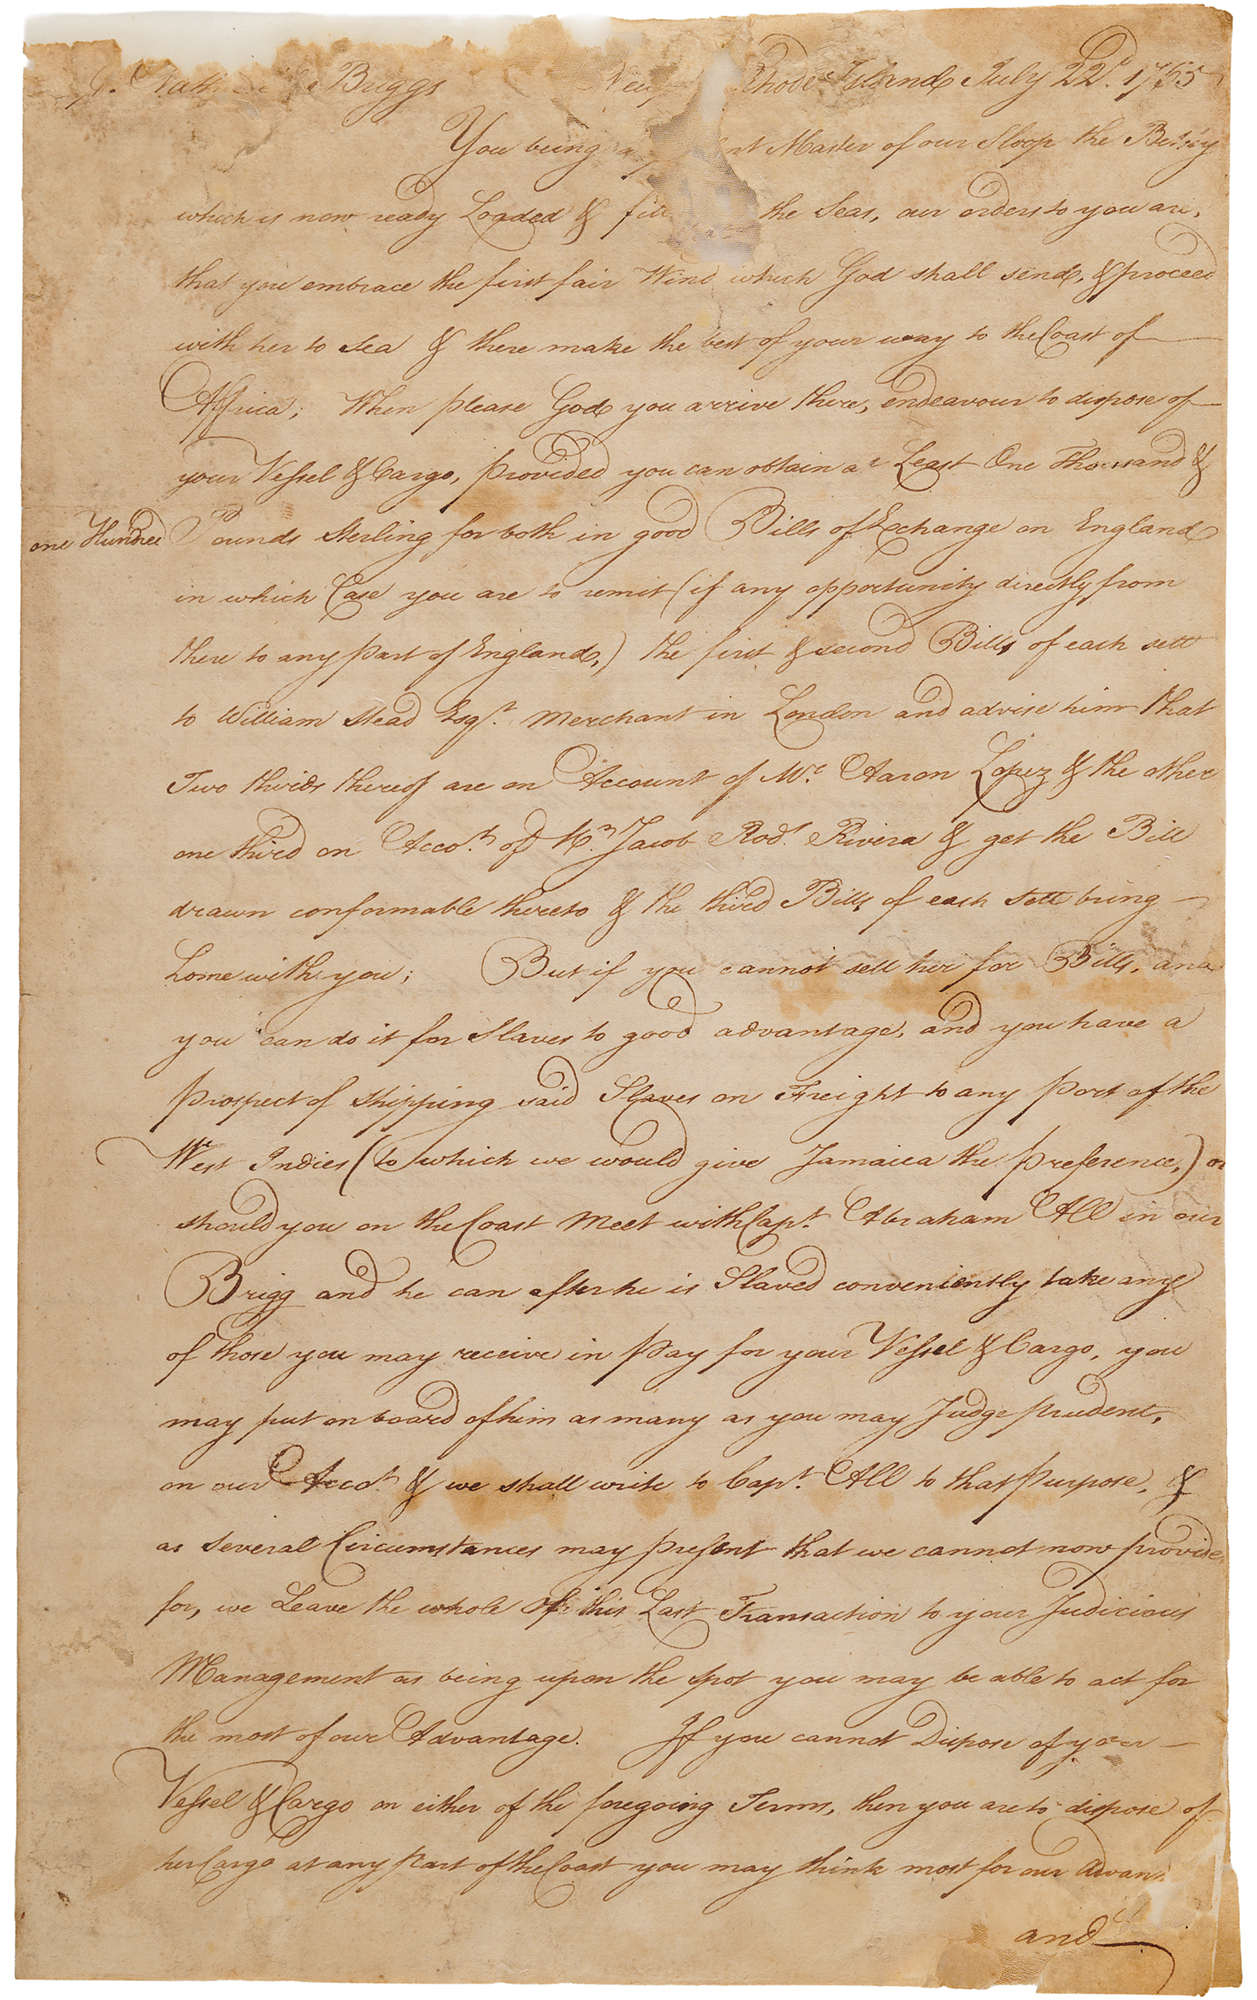 Briggs Rhode Island July 22d. 1765
You being Master of our Sloop the Betsey
which is now ready Loaded & the Seas, our orders to you are,
that you embrace the first fair Wind which God shall send, & proceed
with her to Sea & there make the best of your way to the Coast of
Africa; When please God you arrive there, endeavour to dispose of
your Vessel & Cargo, provided you can obtain at Least One Thousand &
one Hundred Pounds Sterling for both in good Bills of Exchange on England
in which Case you are to remit (if any opportunity directly from
there to any part of England,) the first & second Bills of each sett
to William Stead Esqr. Merchant in London and advise him that
Two thirds thereof are on Account of Mr. Aaron Lopez & the other
one third on Accot. of Mr. Jacob Rodr. Rivera & get the Bill
drawn conformable thereto & the third Bills of each Sett bring
home with you; But if you cannot sell her for Bills, and
you can do it for Slaves to good advantage, and you have a
prospect of shipping said Slaves on Freight to any Port of the
West Indies (to which we would give Jamaica the preference,) or
should you on the Coast Meet with Capt. Abraham All in our
Brigg and he can after he is Slaved conveniently take any
of those you may receive in Pay for your Vessel & Cargo, you
may put on board of him as many as you may Judge prudent,
on our Accot. & we shall write to Capt. All to that Purpose, &
as several Circumstances may present that we cannot now provide
for, we Leave the whole of this Last Transaction to your Judicious
Management as being upon the spot you may be able to act for
the most of our Advantage. If you cannot Dispose of your
Vessel & Cargo on either of the foregoing Terms, then you are to dispose of
her Cargo at any Part of the Coast you may think most for our
and